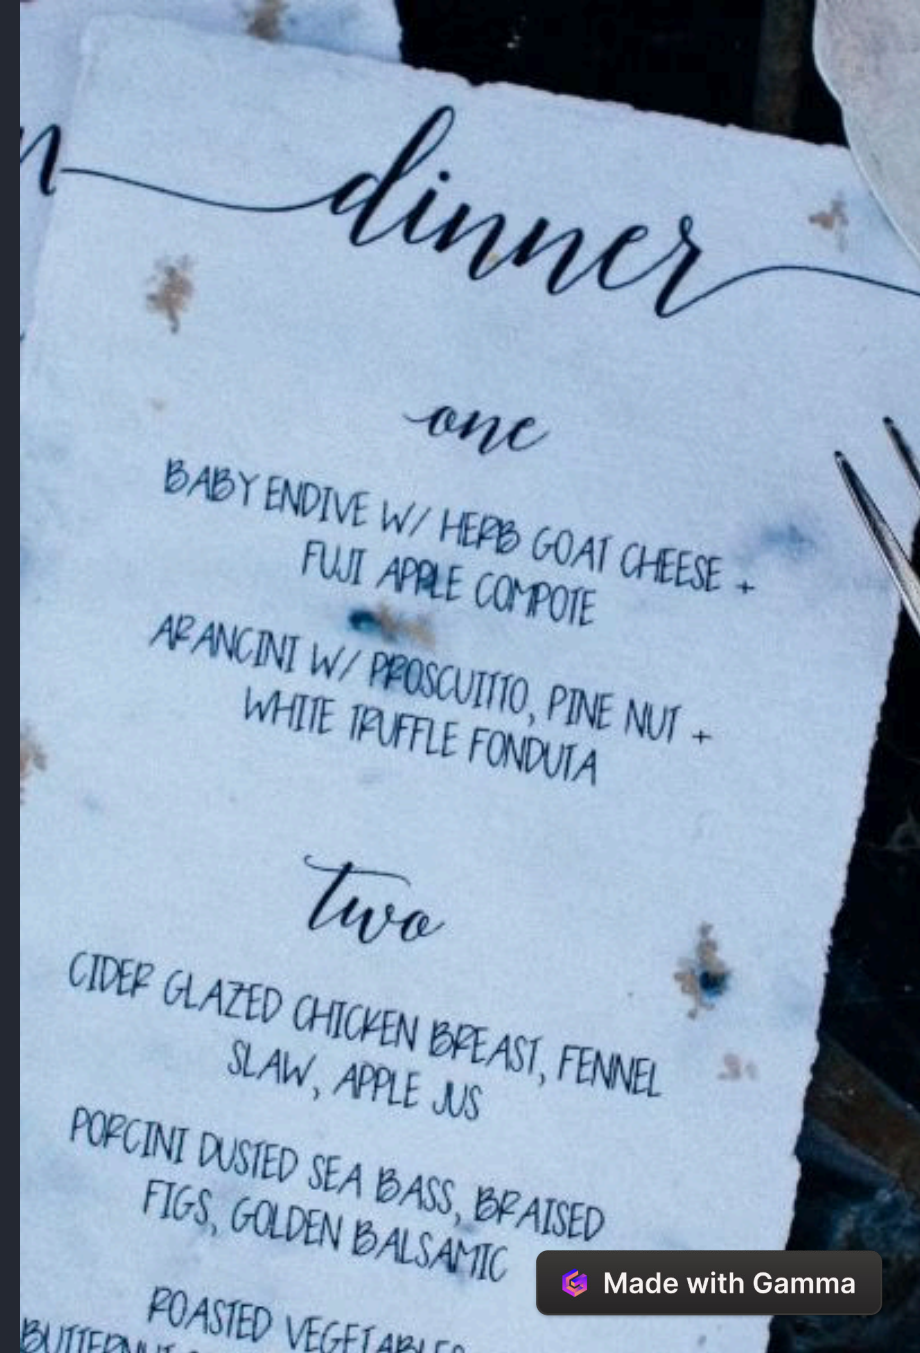 dinner
one
BABY ENDIVE W/ HERB GOAT CHEESE +
FUJI APPLE COMPOTE
ARANCINI W/ PROSCUITTO, PINE NUT +
WHITE TRUFFLE FONDUTA
two
CIDER GLAZED CHICKEN BREAST, FENNEL
SLAW, APPLE JUS
PORCINI DUSTED SEA BASS, BRAISED
FIGS, GOLDEN BALSAMIC
ROASTED VEGETABLES
Made with Gamma